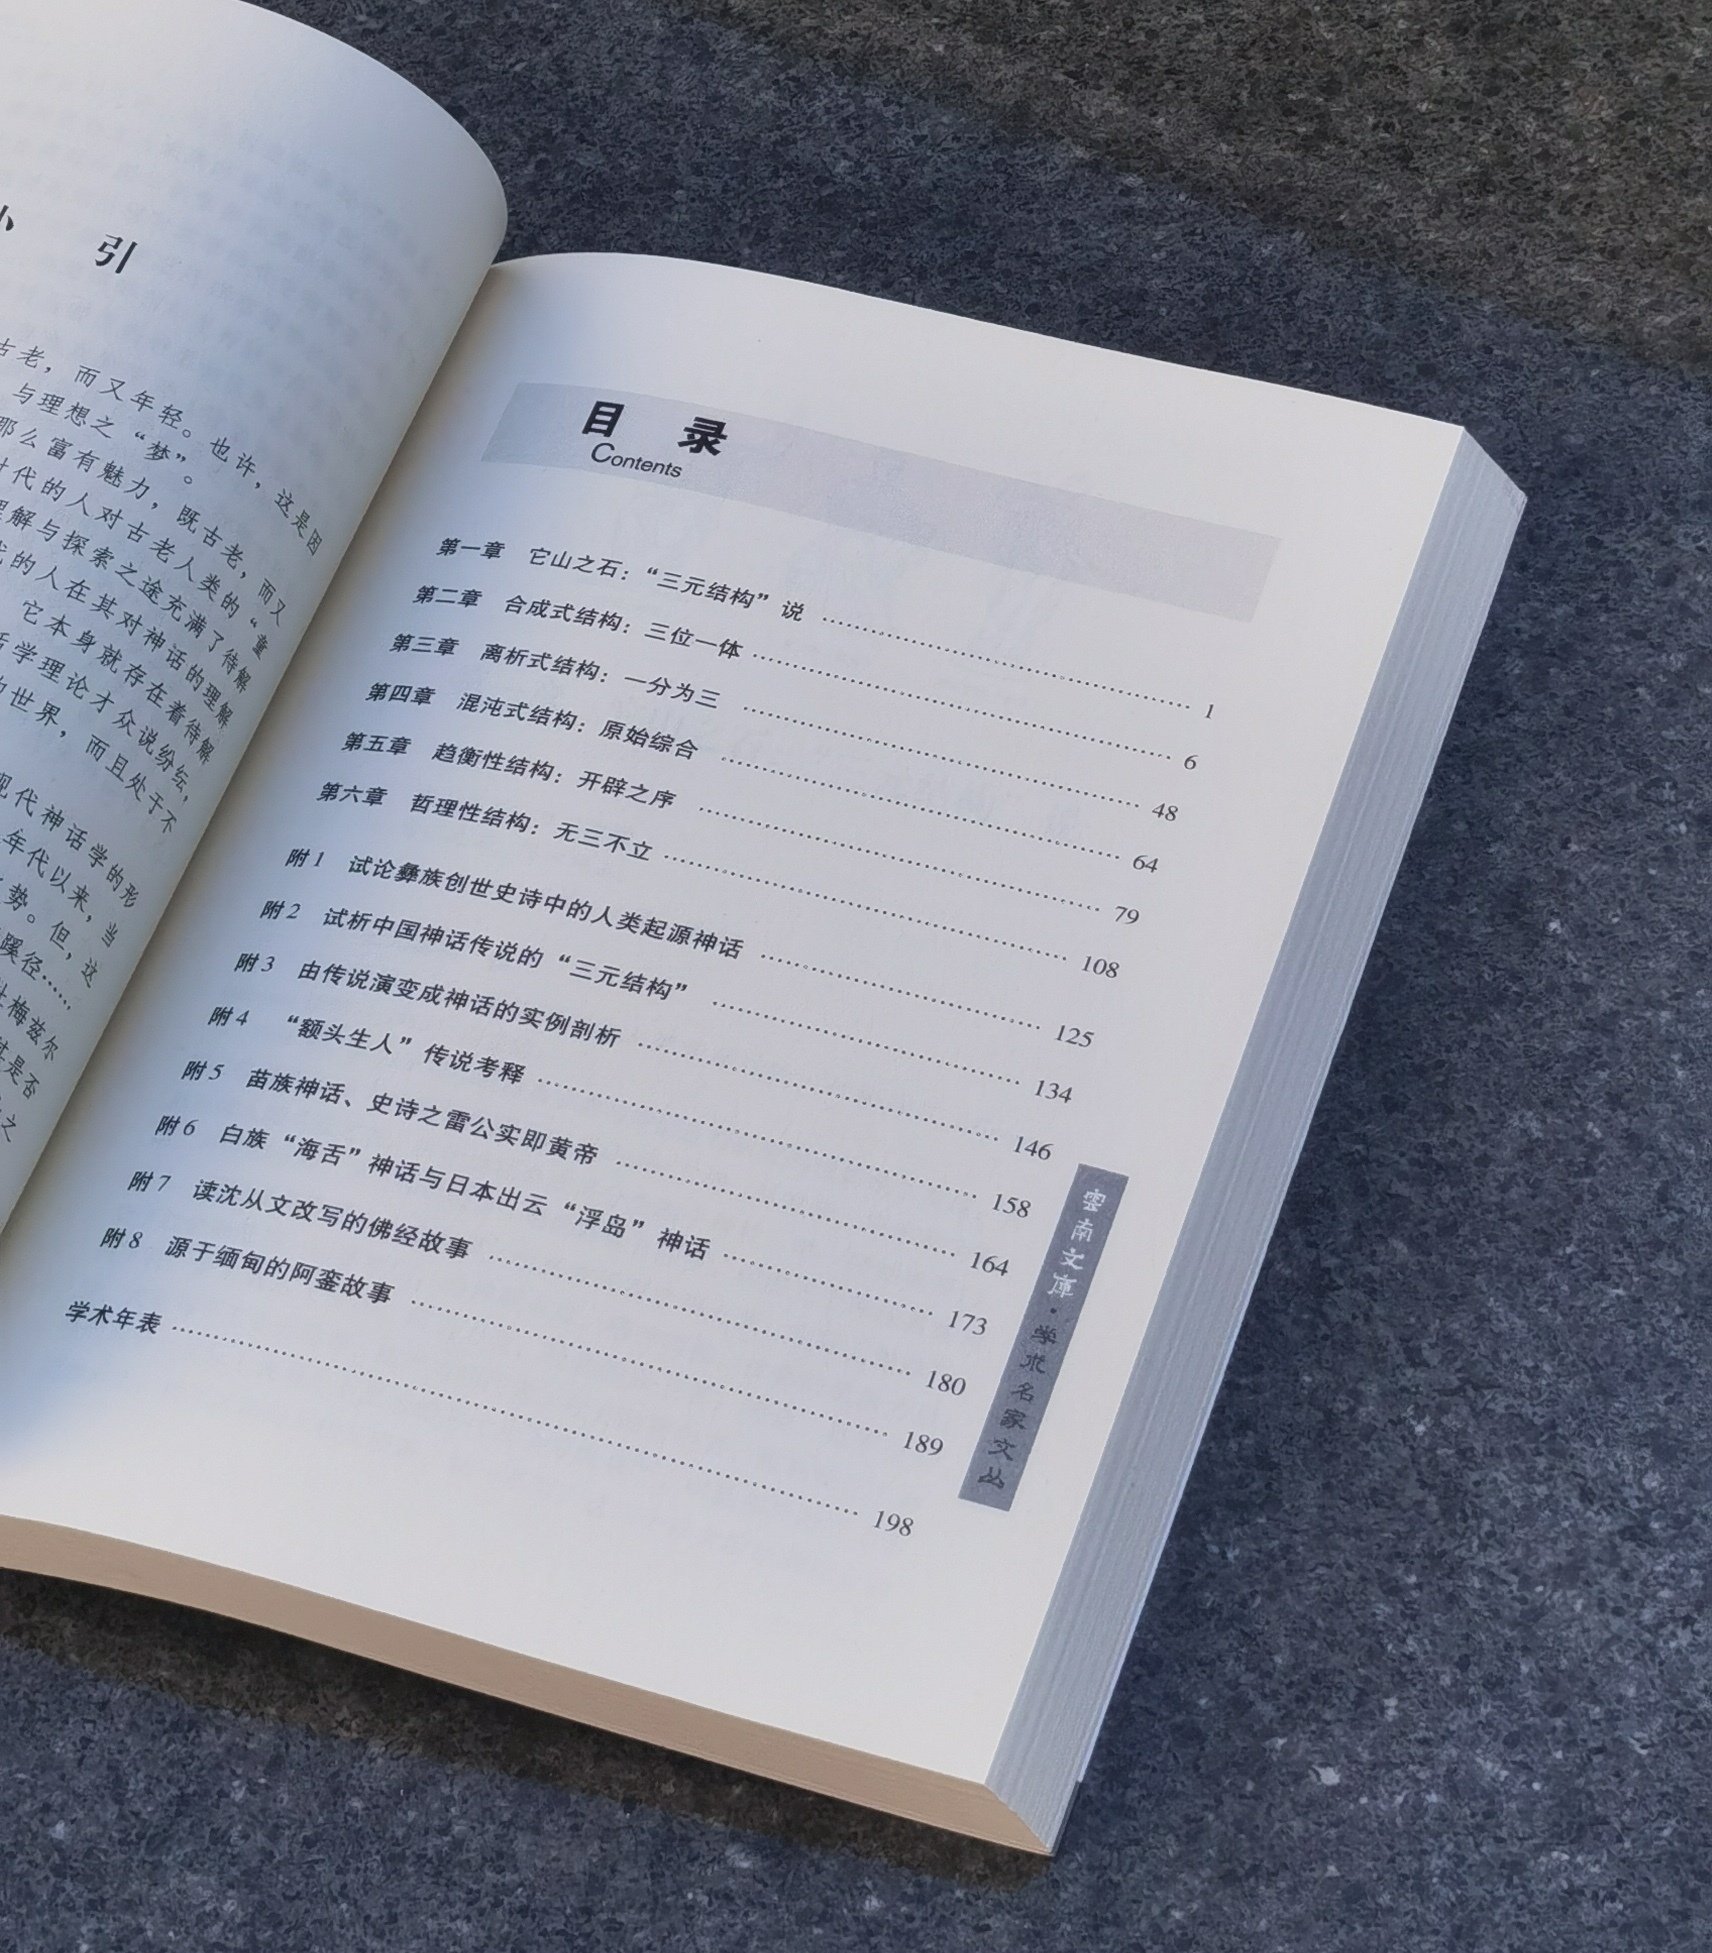 小 引
古老，而又年轻。也许，这是因
与理想之“梦”。
那么富有魅力，既古老，而又
时代的人对古老人类的“童
理解与探索之途充满了待解
代的人在其对神话的理解
它本身就存在着待解
话学理论才众说纷纭，
的世界，而且处于不
现代神话学的形
年代以来，当
势。但，这
蹊径……
杜梅兹尔
是否
之
目 录
Contents
第一章 它山之石：“三元结构”说 1
第二章 合成式结构：三位一体 6
第三章 离析式结构：一分为三 48
第四章 混沌式结构：原始综合 64
第五章 趋衡性结构：开辟之序 79
第六章 哲理性结构：无三不立 108
附1 试论彝族创世史诗中的人类起源神话 125
附2 试析中国神话传说的“三元结构” 134
附3 由传说演变成神话的实例剖析 146
附4 “额头生人”传说考释 158
附5 苗族神话、史诗之雷公实即黄帝 164
附6 白族“海舌”神话与日本出云“浮岛”神话 173
附7 读沈从文改写的佛经故事 180
附8 源于缅甸的阿銮故事 189
学术年表 198
雲南文庫·学术名家文丛